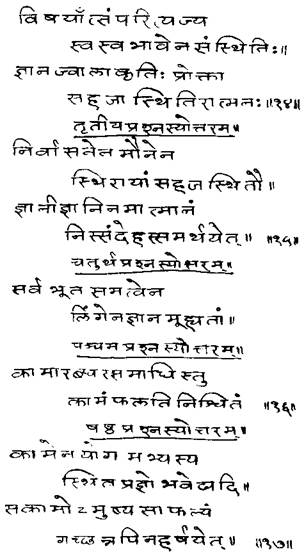 विषयाँत्संपरित्यज्य
स्वस्वभावेन संस्थितिः॥
ज्ञानज्वालाकृतिः प्रोक्ता
सहजा स्थितिरात्मनः॥२४॥
तृतीयप्रश्नस्योत्तरम्॥
निर्वासनेन मौनेन
स्थिरायां सहजस्थितौ॥
ज्ञानीज्ञानिनमात्मानं
निस्संदेहस्समर्थयेत्॥ ॥२५॥
चतुर्थप्रश्नस्योत्तरम्॥
सर्वभूतसमत्वेन
लिंगेनज्ञानमूह्यतां॥
पञ्चमप्रश्नस्योत्तरम्॥
कामारब्धस्समाधिस्तु
कामंफलति निश्चितं ॥२६॥
षष्ठप्रश्नस्योत्तरम्॥
कामेन योगमभ्यस्य
स्थितप्रज्ञो भवेद्यदि॥
सकामोऽमुष्य साफल्यं
गच्छन्नपिनहर्षयेत्॥ ॥२७॥